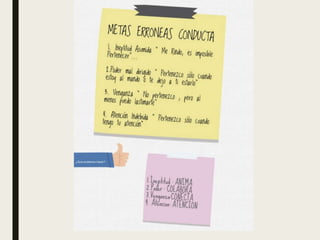 METAS ERRONEAS CONDUCTA
1. Ineptitud Asumida " Me Rindo, es imposible
Pertenecer"...
2. Poder mal dirigido " Pertenezco sólo cuando
estoy al mando o te dejo a ti estarlo"
3. Venganza " No pertenezco , pero al
menos puedo lastimarte"
4. Atención Indebida " Pertenezco sólo cuando
tengo tu atención"
1. Ineptitud : ANIMA
2. Poder : COLABORA
3. Venganza: CONECTA
4. Atencion: ATENCION